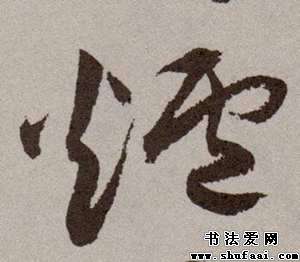 爐
书法爱网
www.shufaai.com